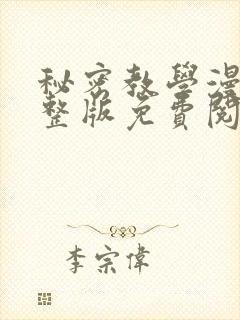 秘密教學漫
整版免費閱
李宗偉